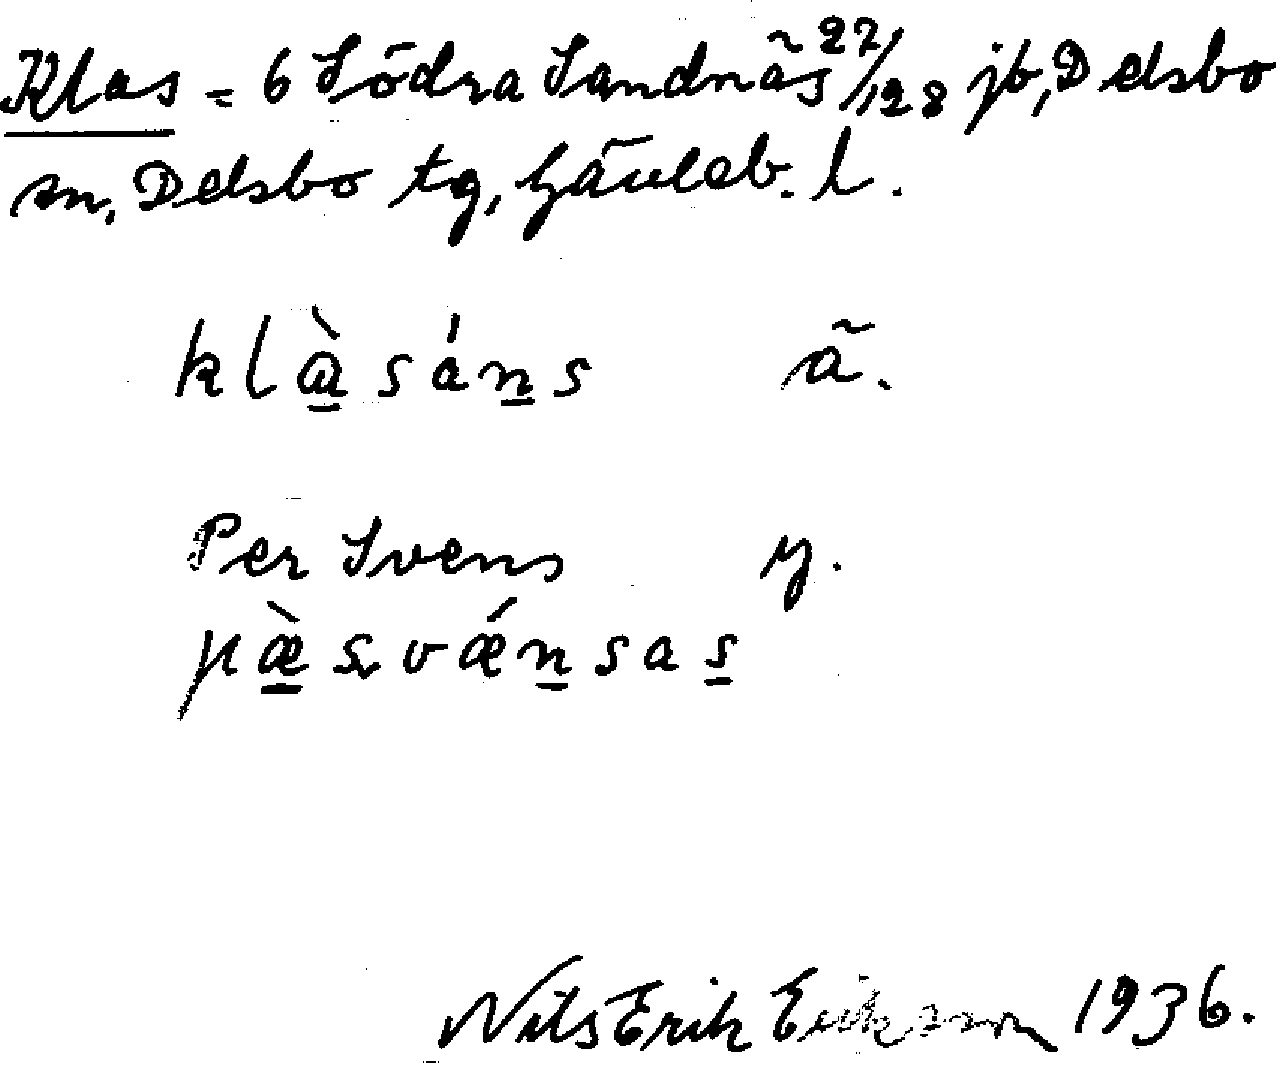 Klas = 6 Södra Sandnäs 27/128 jb, Delsbo
sn, Delsbo tg, Gävleb. l.
klàsáns ä.
Per Svens y.
pæ̀svǽnsas
Nils Erik Eriksson 1936.